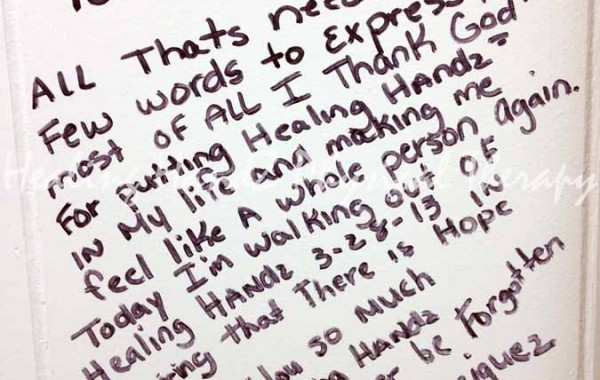 All Thats
Few words to Express
most of ALL I Thank God
For putting Healing HANDz
IN My life and making me
feel like A whole person again.
Today I'm walking out of
Healing HANDz 3-28-13 IN
that There is Hope
You so much
HANDz
be Forgotten
Healing Handz Physical Therapy